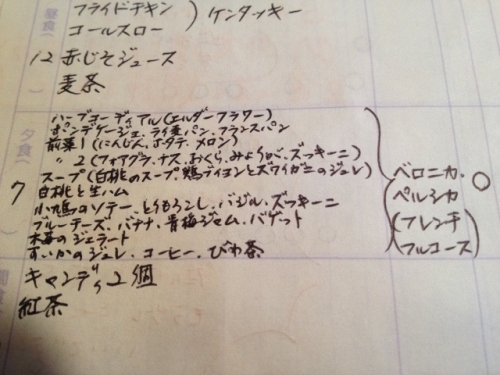 フライドチキン
コールスロー
ケンタッキー
12 赤じそジュース
麦茶
夕食
ハーブコーディアル(エルダーフラワー)
ポンデケージョ、ライ麦パン、フランスパン
前菜1(にんじん、ホタテ、メロン)
〃 2(フォアグラ、ナス、おくら、みょうが、ズッキーニ)
7 スープ(白桃のスープ、鶏ディヨンとズワイガニのジュレ)
白桃と生ハム
小鳩のソテー、とうもろこし、バジル、ズッキーニ
ブルーチーズ、バナナ、青梅ジャム、バゲット
木苺のジェラート
すいかのジュレ、コーヒー、びわ茶
ベロニカ
ペルシカ
(フレンチ
フルコース)
キャンディ2個
紅茶